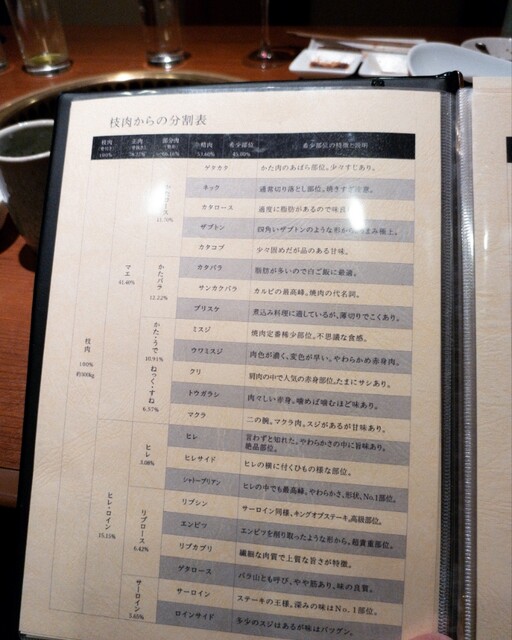 枝肉からの分割表
枝肉 正肉 部分肉 小割肉 希少部位 希少部位の特徴と説明
枝肉
100%
約500kg
マエ
41.46%
ヒレ・ロイン
15.15%
11.70%
かたバラ
12.22%
かた・うで
10.91%
ねっく・すね
6.57%
ヒレ
3.08%
リブロース
6.42%
サーロイン
5.65%
ゲタカタ かた肉のあばら部位。少々すじあり。
ネック 通常切り落とし部位。焼きすぎ注意。
カタロース 適度に脂肪があるので味良
ザブトン 四角いザブトンのような形から。うまみ極上。
カタコブ 少々固めだが品のある甘味。
カタバラ 脂肪が多いので白ご飯に最適。
サンカクバラ カルビの最高峰。焼肉の代名詞。
ブリスケ 煮込み料理に適しているが、薄切りでこくあり。
ミスジ 焼肉定番稀少部位。不思議な食感。
ウワミスジ 肉色が濃く、変色が早い。やわらかめ赤身肉。
クリ 肩肉の中で人気の赤身部位。たまにサシあり。
トウガラシ 肉々しい赤身。噛めば噛むほど味あり。
マクラ 二の腕。マクラ肉。スジがあるが甘味あり。
ヒレ 言わずと知れた、やわらかさの中に旨味あり。
絶品部位。
ヒレサイド ヒレの横に付くひもの様な部位。
シャトーブリアン ヒレの中でも最高峰。やわらかさ、形状、No.1部位。
リブシン サーロイン同様、キングオブステーキ。高級部位。
エンピツ エンピツを削り取ったような形から。超貴重部位。
リブカブリ 繊細な肉質で上質な旨さが特徴。
ゲタロース バラ山とも呼び、やや筋あり。味の良質。
サーロイン ステーキの王様。深みの味はNo.1部位。
ロインサイド 多少のスジはあるが味はバツグン。